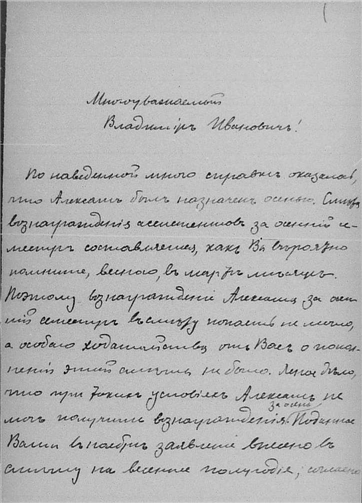 Многоуважаемый
Владимiръ Ивановичъ!
По наведенной мною справкѣ оказалось,
что Алексатъ былъ назначенъ осенью. Смѣта
вознагражденiя ассистентовъ за осеннiй се-
местръ составляется, какъ Вы вѣроятно
помните, весною, въ мартѣ мѣсяцѣ.
Поэтому вознагражденiе Алексата за осен-
нiй семестръ въ смѣту попасть не могло,
а особаго ходатайства отъ Васъ о попол-
ненiи этой смѣты не было. Ясное дѣло,
что при такихъ условiяхъ Алексатъ не
могъ получить за осень вознагражденiя. Поданное
Вами въ ноябрѣ заявленiе внесено въ
смѣту на весеннее полугодiе; согласно